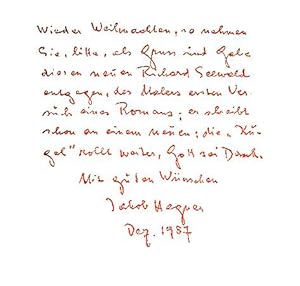 Wieder Weihnachten, so nehmen
Sie, bitte, als Gruss und Gabe
diesen neuen Richard Seewald
entgegen, des Malers ersten Ver-
such eines Romans; er schreibt
schon an einem neuen; die "Ku-
gel" rollt weiter, Gott sei Dank.
Mit guten Wünschen
Jakob Hegner
Dez. 1957